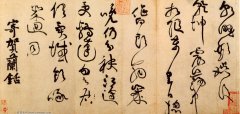 朝野歡娛後
乾坤震蕩中
相隨萬里日總
作白頭翁歲
晚仍分袂江邊
更轉蓬勿云
俱異域飲
啄幾回同
寄賀蘭銛